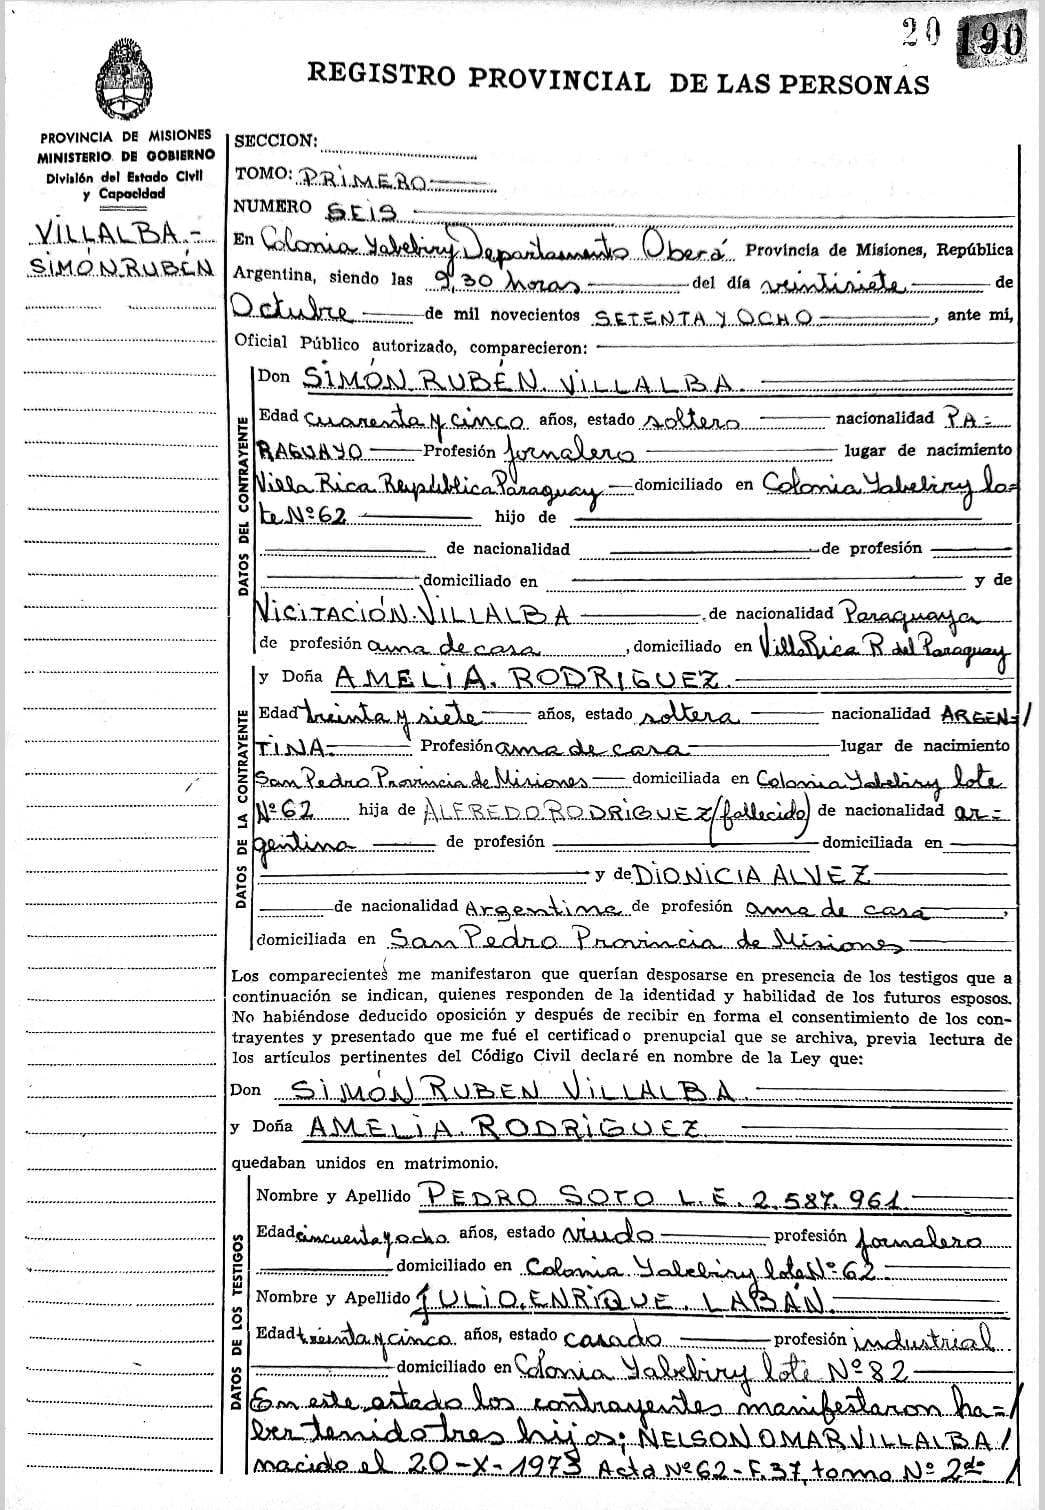 20 190
REGISTRO PROVINCIAL DE LAS PERSONAS
PROVINCIA DE MISIONES
MINISTERIO DE GOBIERNO
División del Estado Civil
y Capacidad
VILLALBA.-
SIMÓN RUBÉN
SECCION:
TOMO: PRIMERO
NUMERO SEIS
En Colonia Yabebiry Departamento Oberá Provincia de Misiones, República
Argentina, siendo las 9,30 horas del día veintisiete de
Octubre de mil novecientos SETENTA Y OCHO, ante mi,
Oficial Público autorizado, comparecieron:
DATOS DEL CONTRAYENTE
Don SIMÓN RUBÉN VILLALBA.
Edad cuarenta y cinco años, estado soltero nacionalidad PA=
RAGUAYO Profesión jornalero lugar de nacimiento
Villa Rica República Paraguay domiciliado en Colonia Yabebiry lo=
te Nº 62 hijo de
de nacionalidad de profesión
domiciliado en y de
VICITACIÓN VILLALBA de nacionalidad Paraguaya
de profesión ama de casa, domiciliado en Villa Rica R. del Paraguay
DATOS DE LA CONTRAYENTE
y Doña AMELIA. RODRIGUEZ.
Edad treinta y siete años, estado soltera nacionalidad ARGEN=/
TINA.- Profesión ama de casa lugar de nacimiento
San Pedro Provincia de Misiones domiciliada en Colonia Yabebiry lote
Nº 62 hija de ALFREDO RODRIGUEZ (fallecido) de nacionalidad ar=
gentina de profesión domiciliada en
y de DIONICIA ALVEZ
de nacionalidad Argentina de profesión ama de casa,
domiciliada en San Pedro Provincia de Misiones
Los comparecientes me manifestaron que querían desposarse en presencia de los testigos que a
continuación se indican, quienes responden de la identidad y habilidad de los futuros esposos.
No habiéndose deducido oposición y después de recibir en forma el consentimiento de los con-
trayentes y presentado que me fué el certificado prenupcial que se archiva, previa lectura de
los artículos pertinentes del Código Civil declaré en nombre de la Ley que:
Don SIMÓN RUBEN VILLALBA.
y Doña AMELIA. RODRIGUEZ.
quedaban unidos en matrimonio.
DATOS DE LOS TESTIGOS
Nombre y Apellido PEDRO SOTO L.E. 2.587.961.
Edad cincuenta y ocho años, estado viudo profesión jornalero
domiciliado en Colonia Yabebiry lote Nº 62.
Nombre y Apellido JULIO ENRIQUE LABÁN.
Edad treinta y cinco años, estado casado profesión industrial
domiciliado en Colonia Yabebiry lote Nº 82
En este estado los contrayentes manifestaron ha=/
ber tenido tres hijos; NELSON OMAR VILLALBA/
nacido el 20-X-1973 Acta Nº 62-F.37, tomo Nº 2do/